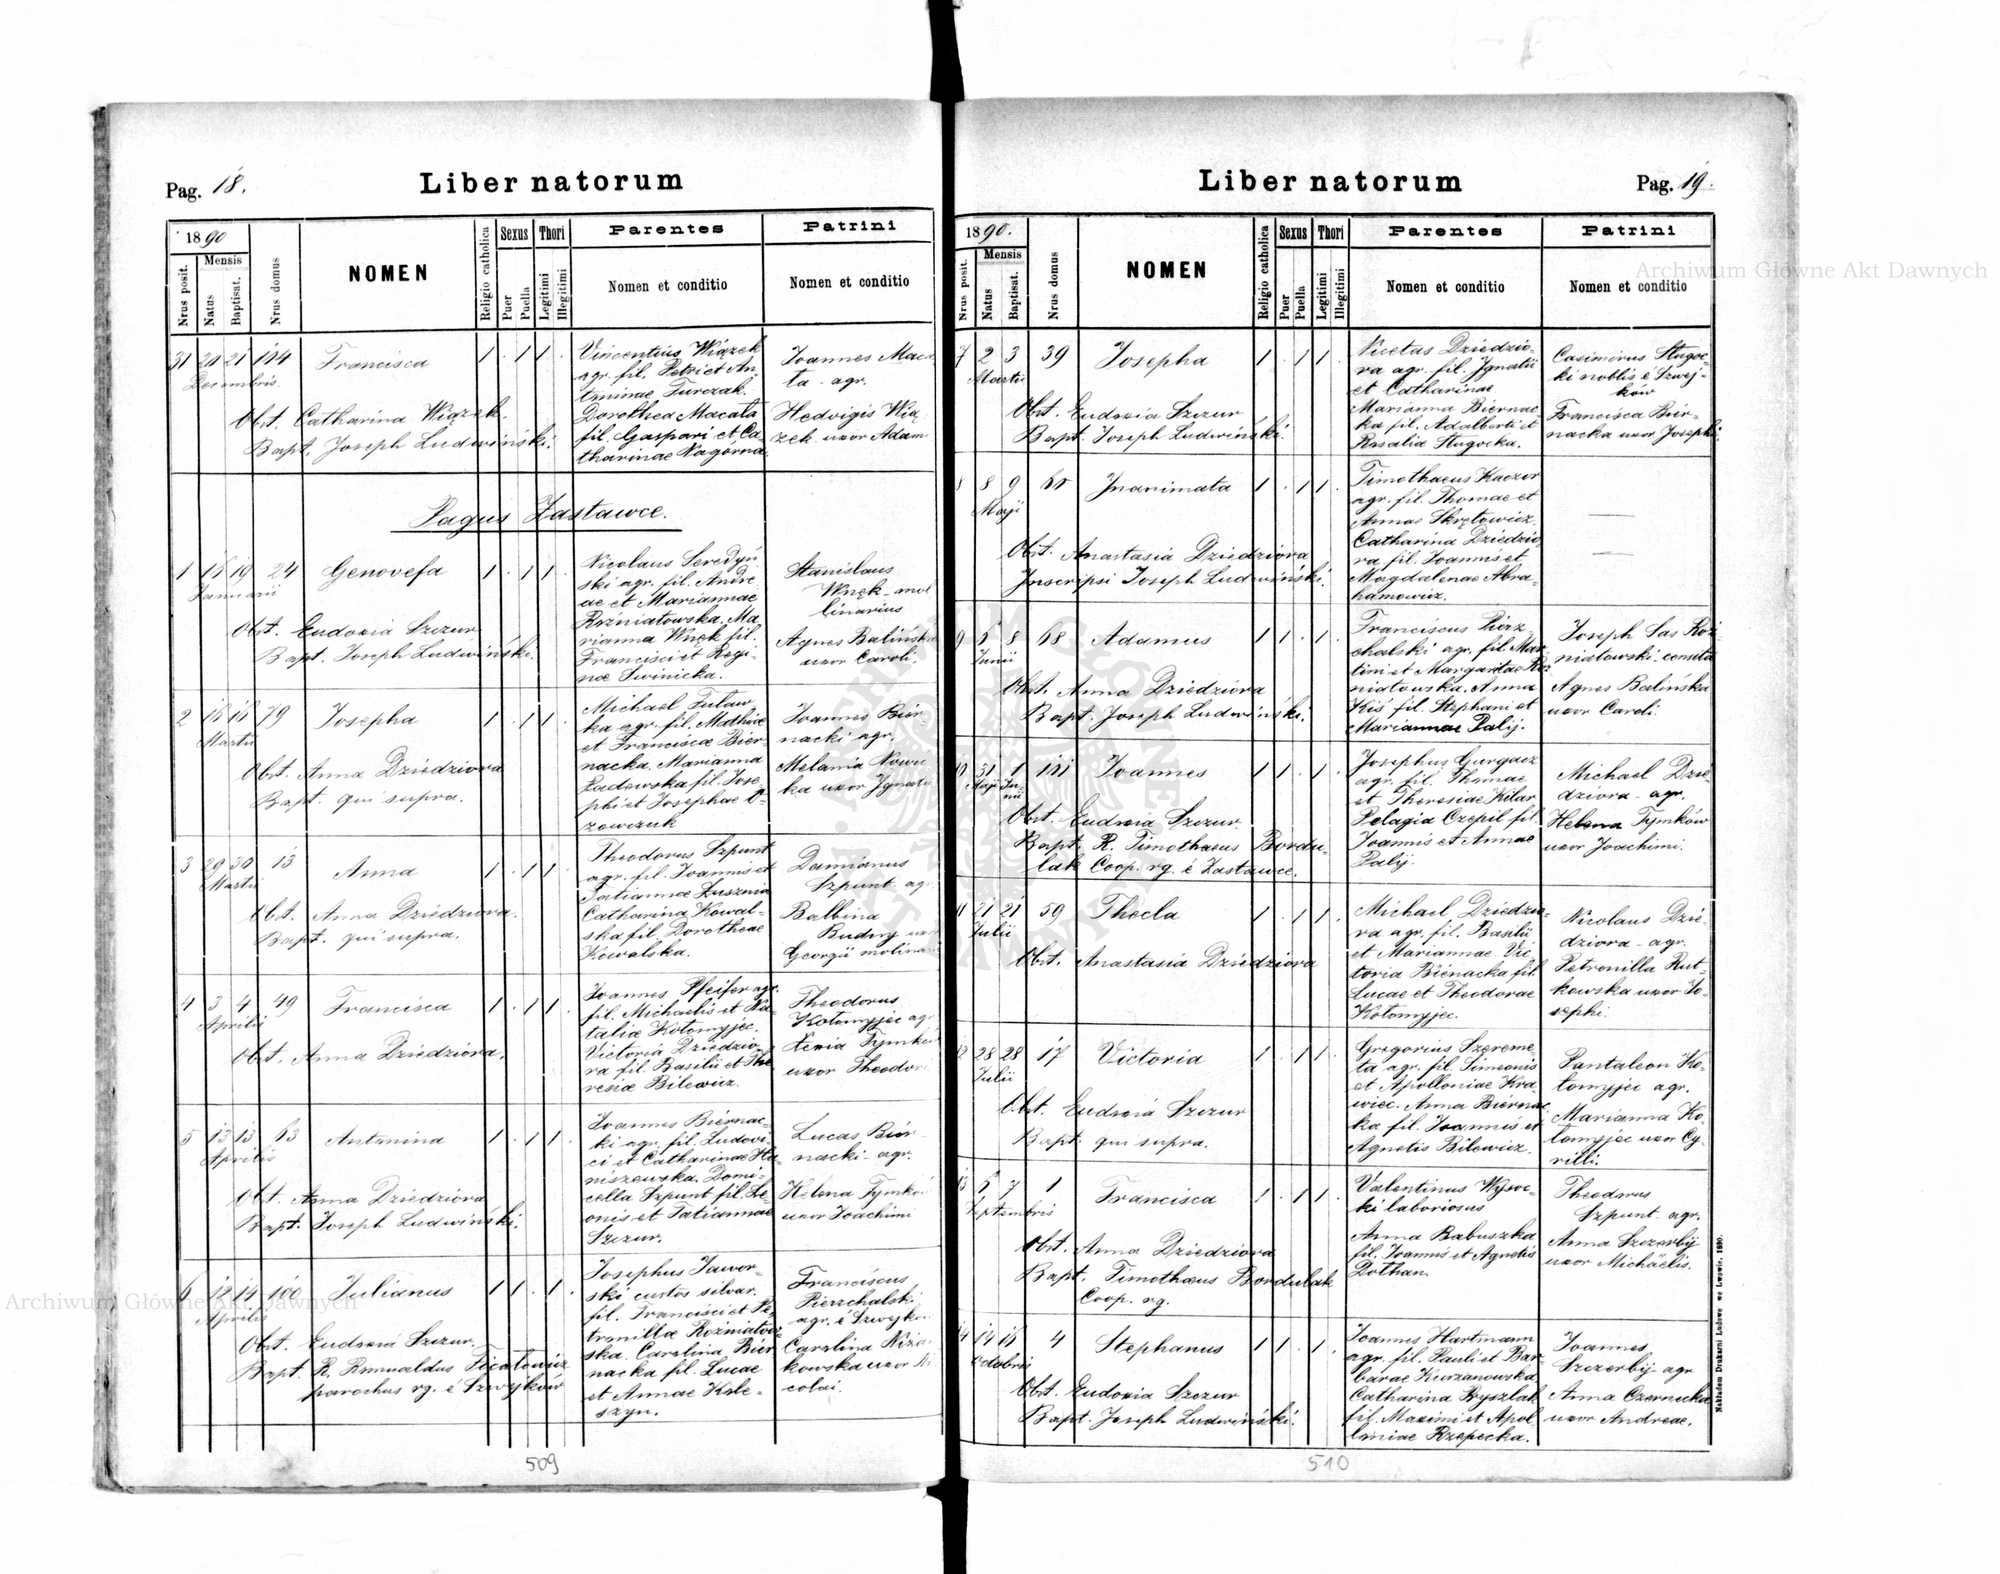 Pag. 18.
Liber natorum
1890
Mensis
Nrus posit.
Natus
Baptisat.
Nrus domus
NOMEN
Religio catholica
Sexus
Puer
Puella
Thori
Legitimi
Illegitimi
Parentes
Nomen et conditio
Patrini
Nomen et conditio
31 20 21 144 Francisca 1 . 1 1 .
Decembris
Obst. Catharina Wiązek.
Bapt. Joseph Ludwiński.
Vincentius Wiązek
agr. fil. Petri et An-
toninae Turczak.
Dorothea Macata
fil. Gaspari et Ca-
tharinae Nagórna.
Joannes Maca
ta - agr.
Hedvigis Wią
zek uxor Adam
Pagus Zastawce.
1 18 19 24 Genovefa 1 . 1 1 .
Januarii
Obst. Eudoxia Szczur
Bapt. Joseph Ludwiński.
Nicolaus Seredyń
ski agr. fil. Andre
ae et Mariannae
Rożniatowska. Ma
rianna Wnęk fil.
Francisci et Regi-
nae Swinicka.
Stanislaus
Wnęk - mol
linarius
Agnes Balińska
uxor Caroli.
2 18 18 79 Josepha 1 . 1 1 .
Martii
Obst. Anna Dziedziora
Bapt. qui supra.
Michael Tutaw
ka agr. fil. Mathiae
et Francisca Bier-
nacka. Marianna
Ladowska fil. Jose-
phi et Josephae
Joannes Bier
nacki agr.
Melania Nowi
ka uxor Ignatii
3 29 30 13 Anna 1 . 1 1 .
Martii
Obst. Anna Dziedziora.
Bapt. qui supra.
Theodorus Szpunt
agr. fil. Joannis et
Tatiannae Łusznia
Catharina Kowal-
ska fil. Dorotheae
Kowalska.
Damianus
Szpunt agr.
Balbina
Budny uxor
Georgii molina
4 3 4 49 Francisca 1 . 1 1 .
Aprilis
Obst. Anna Dziedziora.
Joannes Pfeifer agr.
fil. Michaelis et Na-
taliae Kołomyjec.
Victoria Dziedzio
ra fil. Basilii et The
resiae Bilewicz.
Theodorus
Kołomyjec agr.
Xenia Tymków
uxor Theodori
5 13 13 63 Antonina 1 . 1 1 .
Aprilis
Obst. Anna Dziedziora
Bapt. Joseph Ludwiński.
Joannes Biernac-
ki agr. fil. Ludovi-
ci et Catharinae Ha
niszewska. Domi-
cella Szpunt fil. Le-
onis et Tatiannae
Szczur.
Lucas Bier-
nacki - agr.
Helena Tymków
uxor Joachimi
6 12 14 100 Julianus 1 1 . 1 .
Aprilis
Obst. Eudoxia Szczur.
Bapt. R. Romualdus Ficałowicz
parochus rg. é Szwejków
Josephus Jawor-
ski custos silvar.
fil. Francisci et Pe-
tronillae Rożniatow-
ska. Carolina Bier
nacka fil. Lucae
et Annae Kule-
szyn.
Franciscus
Pierzchalski
agr. é Szwejków
Carolina Niża
kowska uxor Ni
colai.
509
Pag. 19.
Liber natorum
1890.
Mensis
Nrus posit.
Natus
Baptisat.
Nrus domus
NOMEN
Religio catholica
Sexus
Puer
Puella
Thori
Legitimi
Illegitimi
Parentes
Nomen et conditio
Patrini
Nomen et conditio
7 2 3 39 Josepha 1 . 1 1 .
Martii
Obst. Eudoxia Szczur
Bapt. Joseph Ludwiński.
Nicetas Dziedzio-
ra agr. fil. Ignatii
et Catharinae
Marianna Biernac-
ka fil. Adalberti et
Rosalia Sługocka.
Casimirus Sługoc-
ki nobilis é Szwej-
ków
Francisca Bier-
nacka uxor Josephi.
8 8 9 Inanimata 1 . 1 1 .
Maji
Obst. Anastasia Dziedziora
Inscripsi Joseph Ludwiński.
Timothaeus Kaczor
agr. fil. Thomae et
Annae Skrętowicz.
Catharina Dziedzio-
ra fil. Joannis et
Magdalenae Abra-
hamowicz.
9 6 8 68 Adamus 1 1 . 1 .
Junii
Obst. Anna Dziedziora
Bapt. Joseph Ludwiński.
Franciscus Pierz-
chalski agr. fil. Mar-
tini et Margaritae Roż
niatowska. Anna
Kiś fil. Stephani et
Mariannae Palij.
Joseph Sas Roż
niatowski - censita
Agnes Balińska
uxor Caroli.
10 31 1 Joannes 1 1 . 1 .
Maji Ju-
nii
Obst. Eudoxia Szczur
Bapt. R. Timothaeus Bordu-
lak Coop. rg. é Zastawce.
Josephus Gurgacz
agr. fil. Thomae
et Theresiae Kilar
Pelagia Czepil fil.
Joannis et Annae
Palij.
Michael Dzie-
dziora - agr.
Helena Tymków
uxor Joachimi.
11 21 21 59 Thecla 1 . 1 1 .
Julii
Obst. Anastasia Dziedziora
Michael Dziedzio-
ra agr. fil. Basilii
et Mariannae Vic
toria Biernacka fil.
Lucae et Theodorae
Kołomyjec.
Nicolaus Dzie-
dziora - agr.
Petronilla Rut-
kowska uxor Jo-
sephi.
12 28 28 17 Victoria 1 . 1 1 .
Julii
Obst. Eudoxia Szczur
Bapt. qui supra.
Gregorius Szereme-
ta agr. fil. Simeonis
et Apolloniae Kra-
wiec. Anna Biernac
ka fil. Joannis et
Agnetis Bilewicz.
Pantaleon Ko-
łomyjec agr.
Marianna Ko-
łomyjec uxor Cy-
rilli.
13 6 7 1 Francisca 1 . 1 1 .
Septembris
Obst. Anna Dziedziora
Bapt. Timothaeus Bordulak
Coop. rg.
Valentinus Wysoc-
ki laboriosus
Anna Babuszka
fil. Joannis et Agnetis
Dothan.
Theodorus
Szpunt - agr.
Anna Szczerbij
uxor Michaëlis.
14 14 18 4 Stephanus 1 1 . 1 .
Octobris
Obst. Eudoxia Szczur
Bapt. Joseph Ludwiński.
Joannes Hartmann
agr. fil. Pauli et Bar-
barae Kurzanowska
Catharina Pryszlak
fil. Maximi et Apol
loniae Rzepecka.
Joannes
Szczerbij - agr
Anna Czernecka
uxor Andreae.
Nakładem Drukarni Ludowe we Lwowie. 1890.
510
Archiwum Główne Akt Dawnych
Archiwum Główne Akt Dawnych
ARCHIWUM GŁÓWNE AKT DAWNYCH